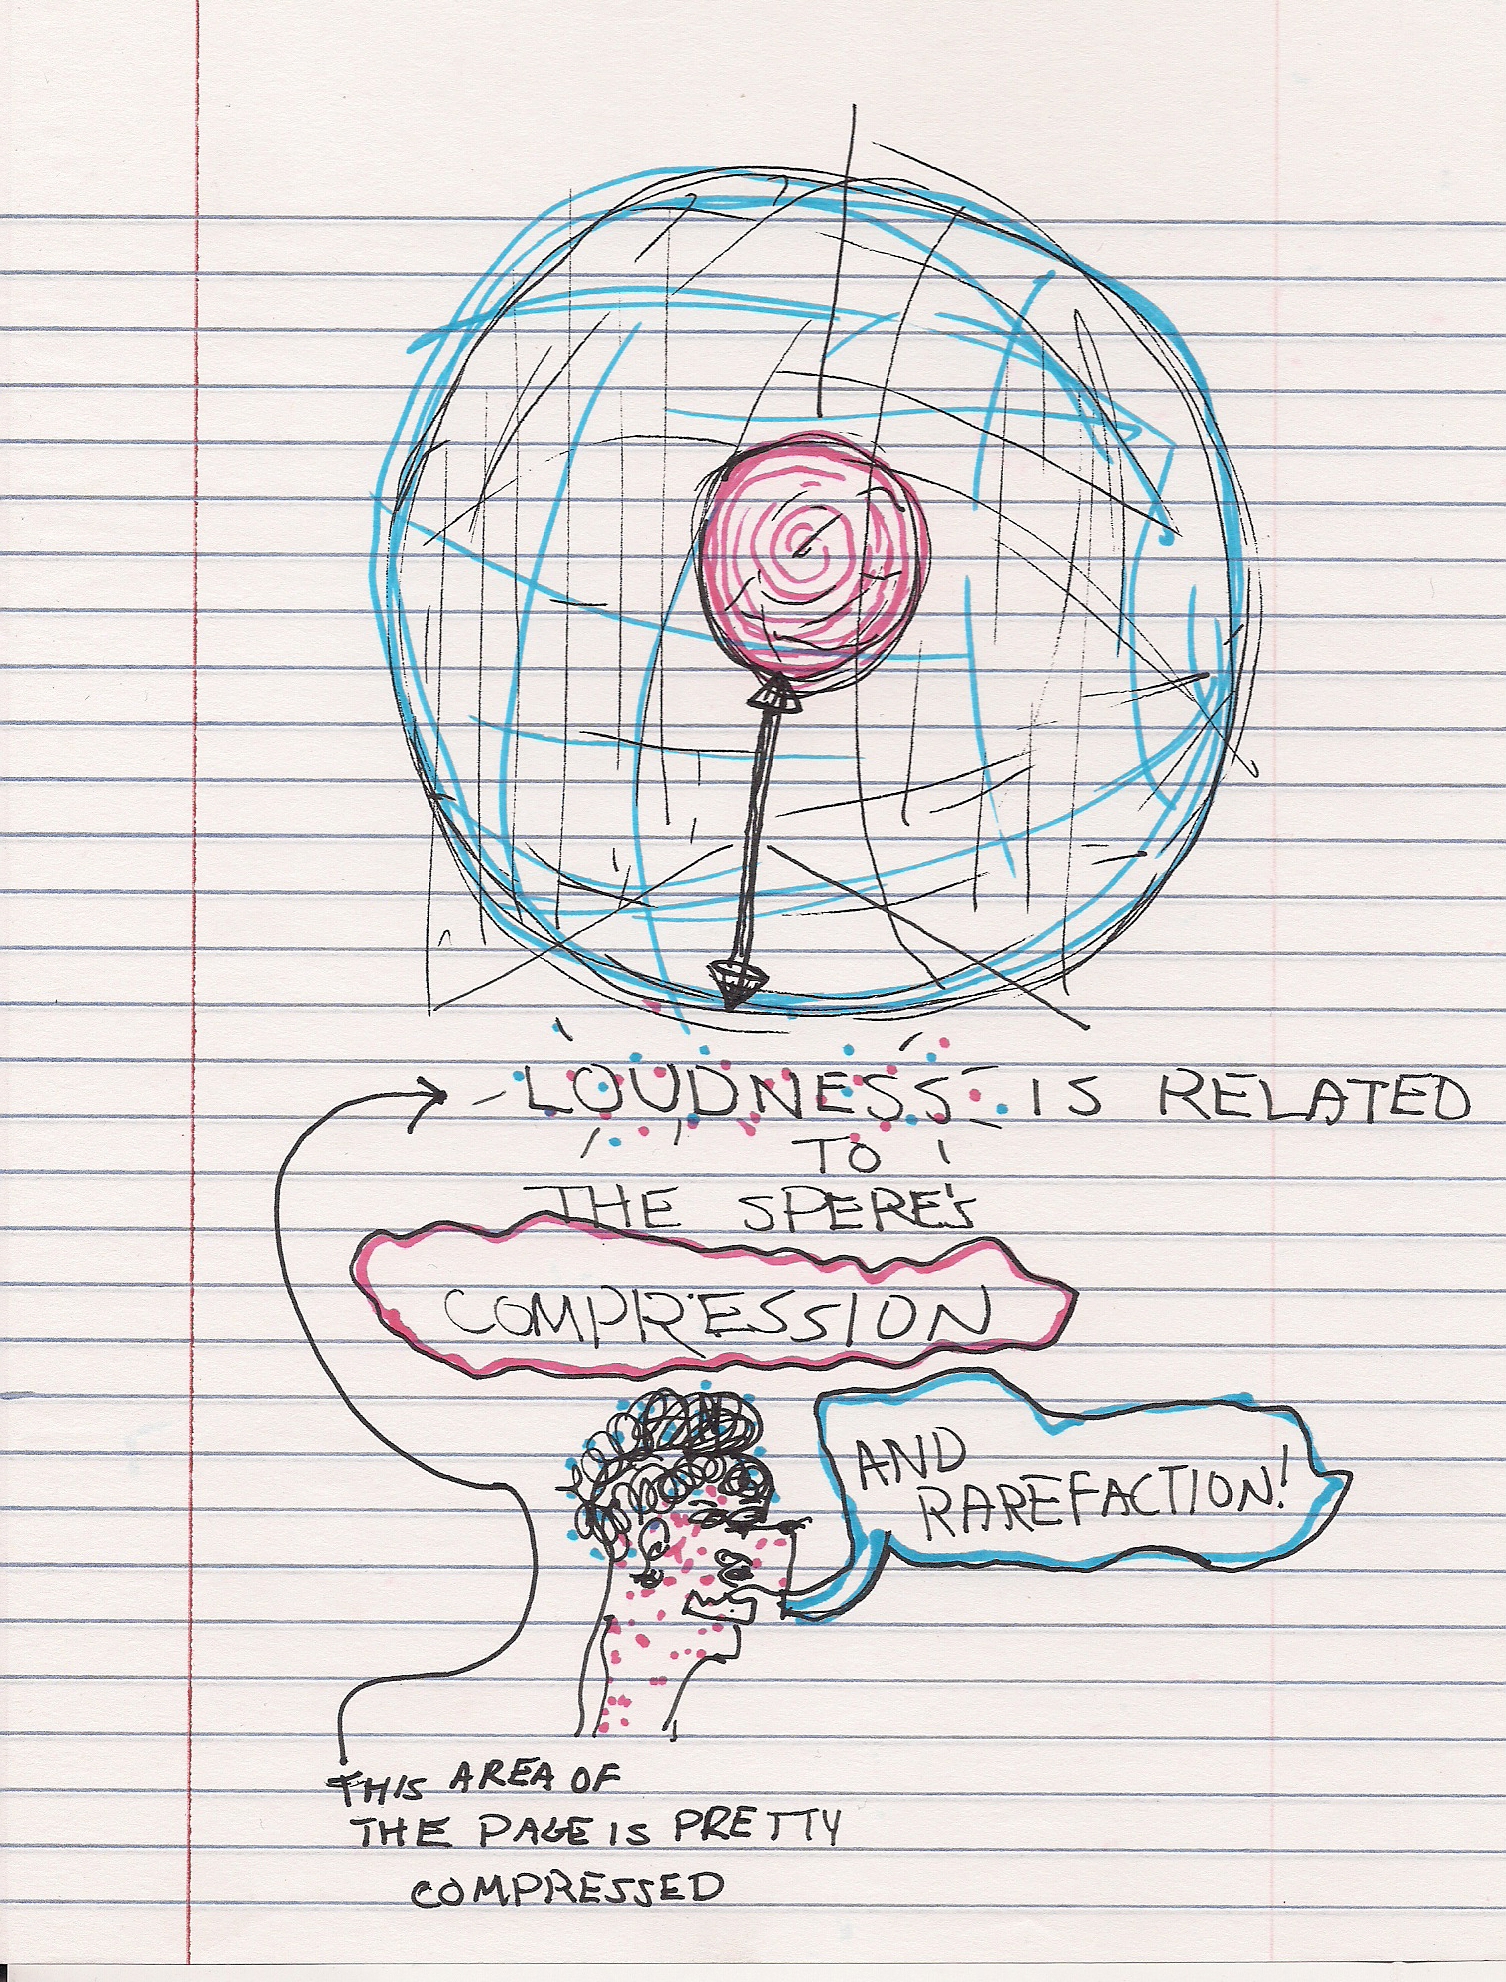 LOUDNESS IS RELATED
TO
THE SPERE'S
COMPRESSION
AND
RAREFACTION!
THIS AREA OF
THE PAGE IS PRETTY
COMPRESSED